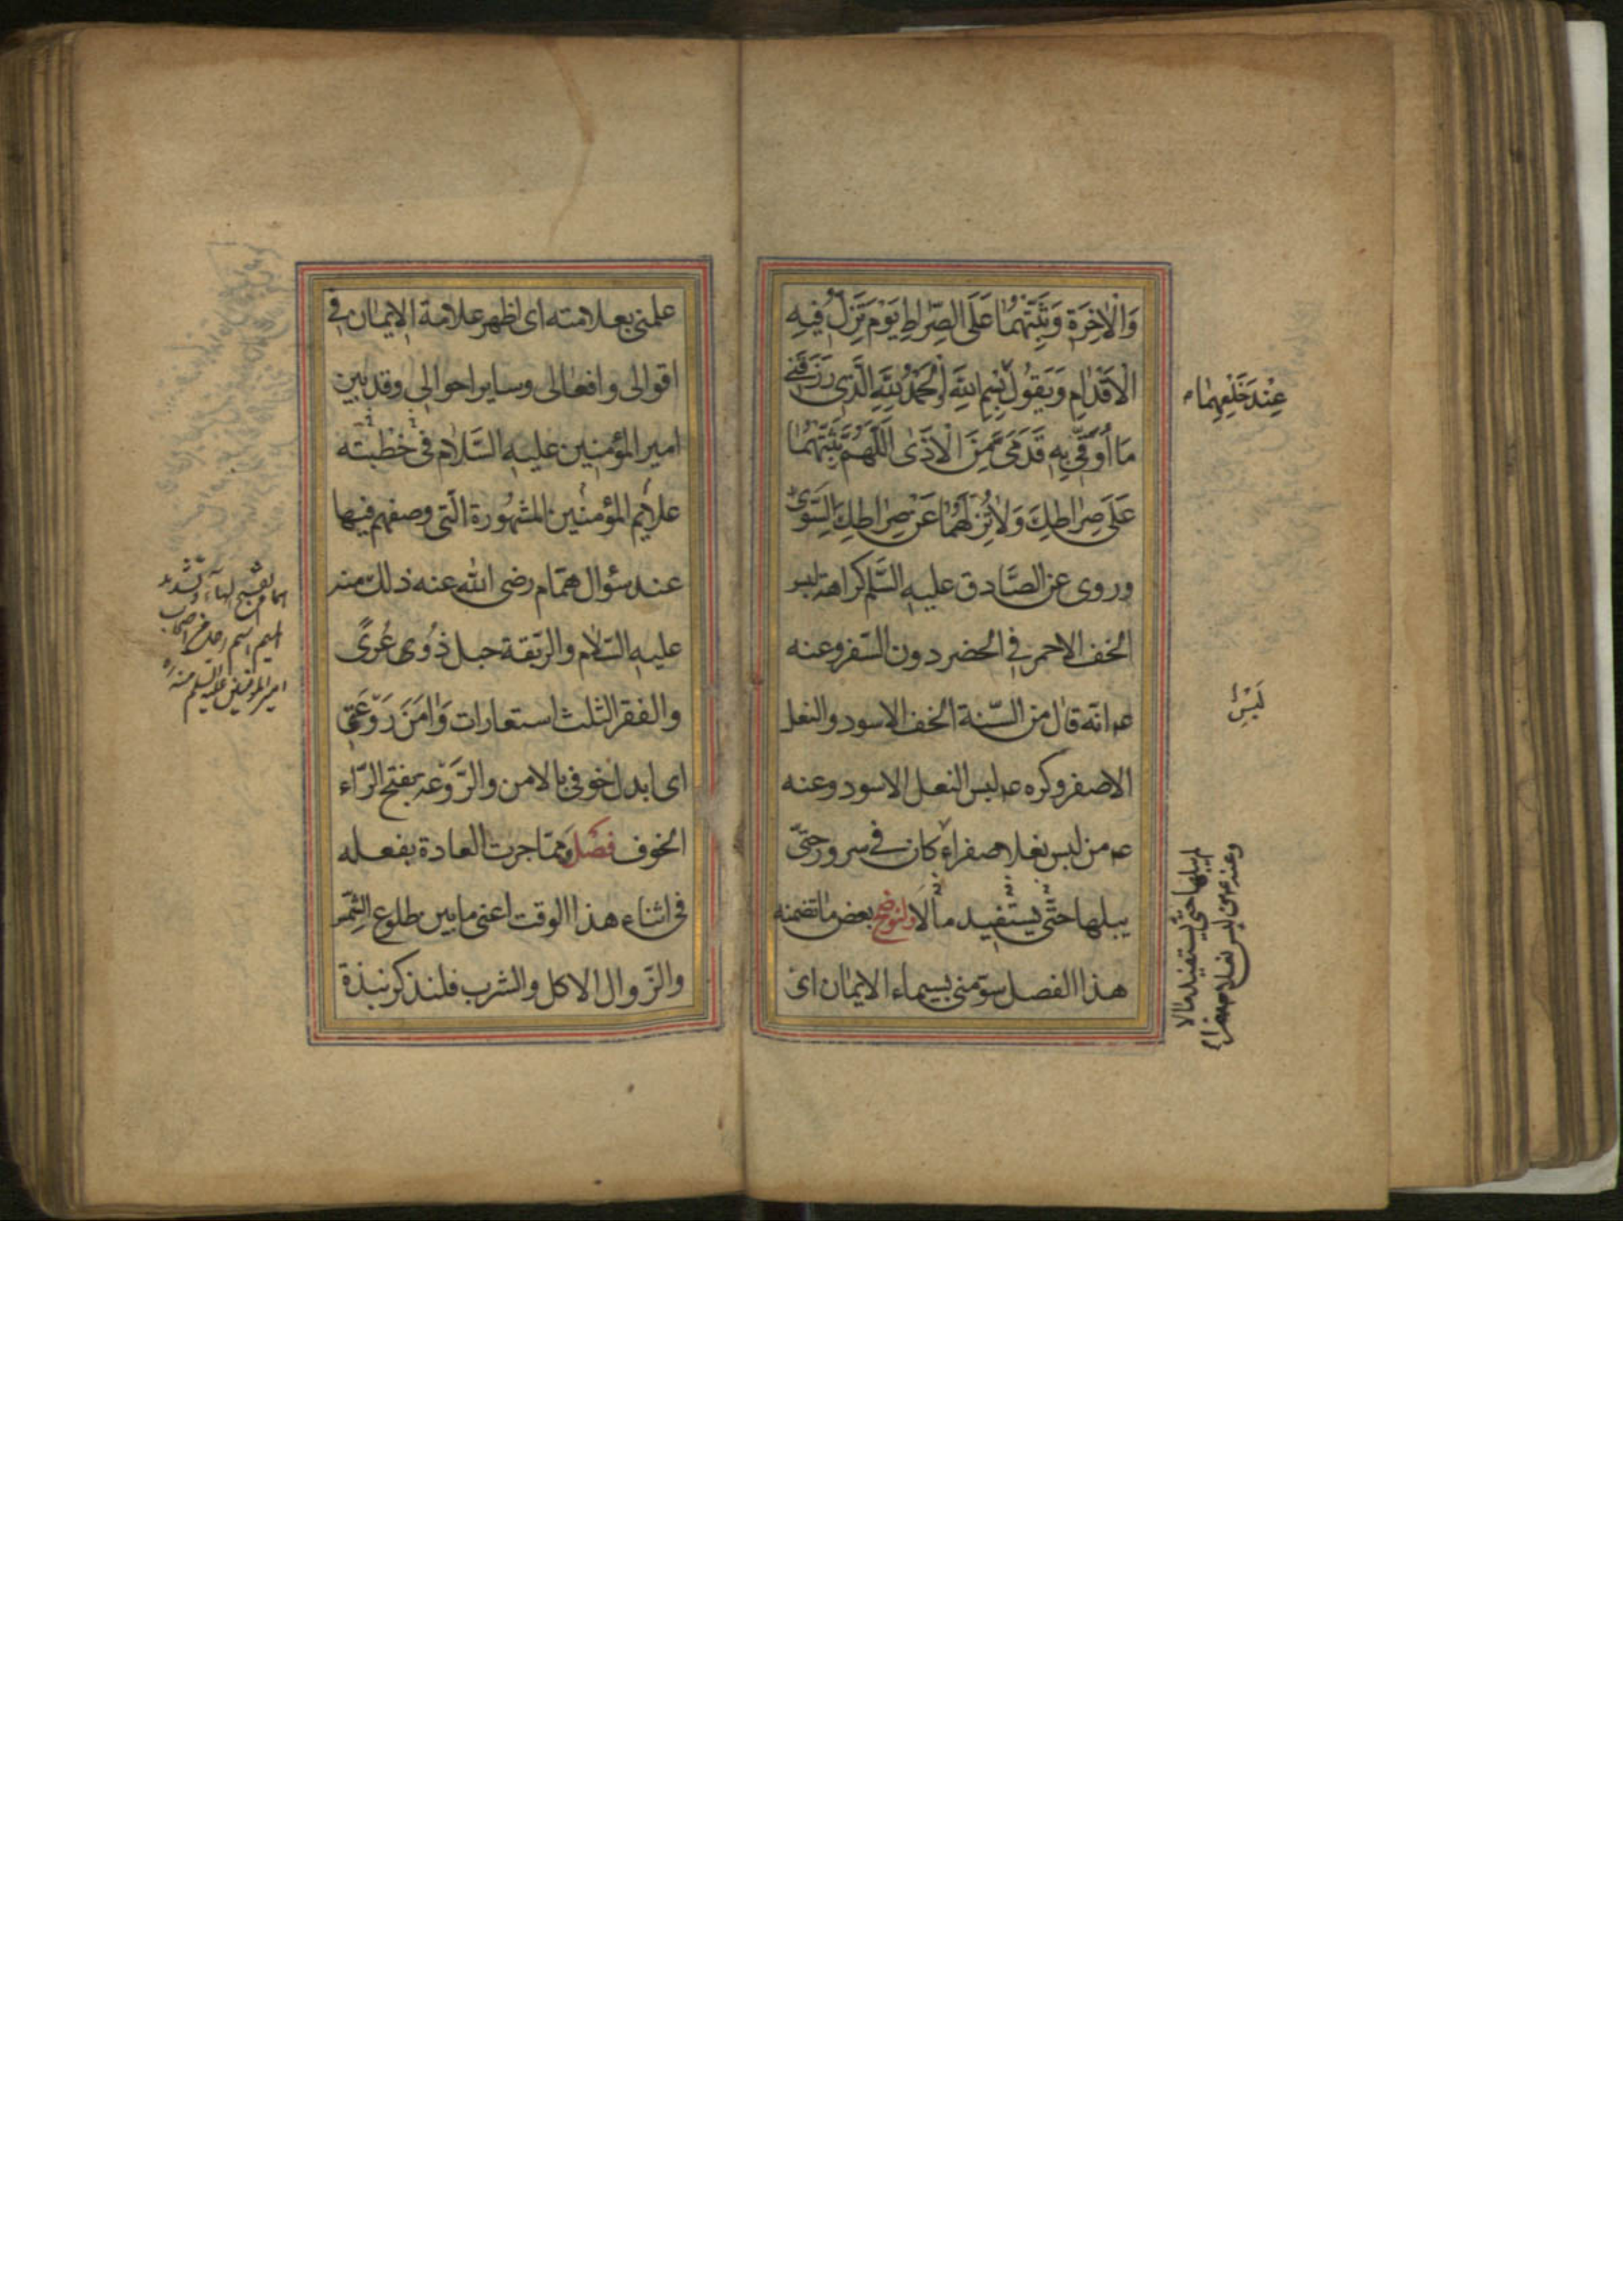 وَالْاٰخِرَةِ وَثَبِّتْهُمٰا عَلَى الصِّرٰاطِ يَوْمَ تَزِلُّ فيٖهِ
الْاَقْدٰامِ وَيَقُولُ بِسْمِ اللّٰهِ اَلْحَمْدُ لِلّٰهِ الَّذٖى رَزَقَنٖى
عِنْدَ خَلْعِهِمٰا
مَا اُوَقّٖى بِهِ قَدَمَىَّ مِنَ الْاَذٰى اَللّٰهُمَّ ثَبِّتْهُمٰا
عَلٰى صِرٰاطِكَ وَلٰا تُزِلَّهُمٰا عَنْ صِرٰاطِكَ السَّوِىّ
وروى عن الصَّادق عليه السَّلم كراهة لبس
الخف الاحمر فى الحضر دون السّفر وعنه
عم انّه قال من السّنة الخف الاسود والنعل
لَبْسِ
الاصفر وكره عم لبس النعل الاسود وعنه
عم من لبس نعلا صفراء كان فى سرور حتىّ
يبلها حتّى يستفيد مالا ولنوضح بعض ما تضمنه
هذا الفصل سوّمنى بسيماء الايمٰان اى
وعنه عم من لبس نعلا صفراء
لم يبلها حتى يستفيد مالا
علمنى بعلامته اى اظهر علامة الايمان فى
اقوالى وافعالى وساير احوالى وقد بين
امير المؤمنين عليه السَّلام فى خطبته
علائم المؤمنين المشهورة الّتى وصفهم فيها
عند سؤال همّام رضى الله عنه ذلك منه
عليه السّلام والرّبقة حبل ذُوُى عُرىً
والفقر الثلث استعارات وَاٰمَنَ رَوْعَتٖى
اى ابدل خوفى بالامن والرَّوْعه بفتح الرّاء
الخوف فصْل وممّا جرت العادة بفعله
فى اثناء هذا الوقت اعنى ما بين طلوع الشّمس
والزّوال الاكل والشرب فلنذكر نبذة
همام بفتح الهاء وتشديد
الميم اسم رجل من اصحاب
امير المؤمنين عليه السلم منه